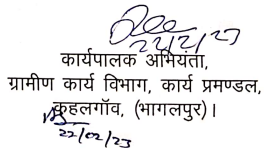 22/2/23
कार्यपालक अभियंता,
ग्रामीण कार्य विभाग, कार्य प्रमण्डल,
कुहलगॉव, (भागलपुर)।
22/02/23